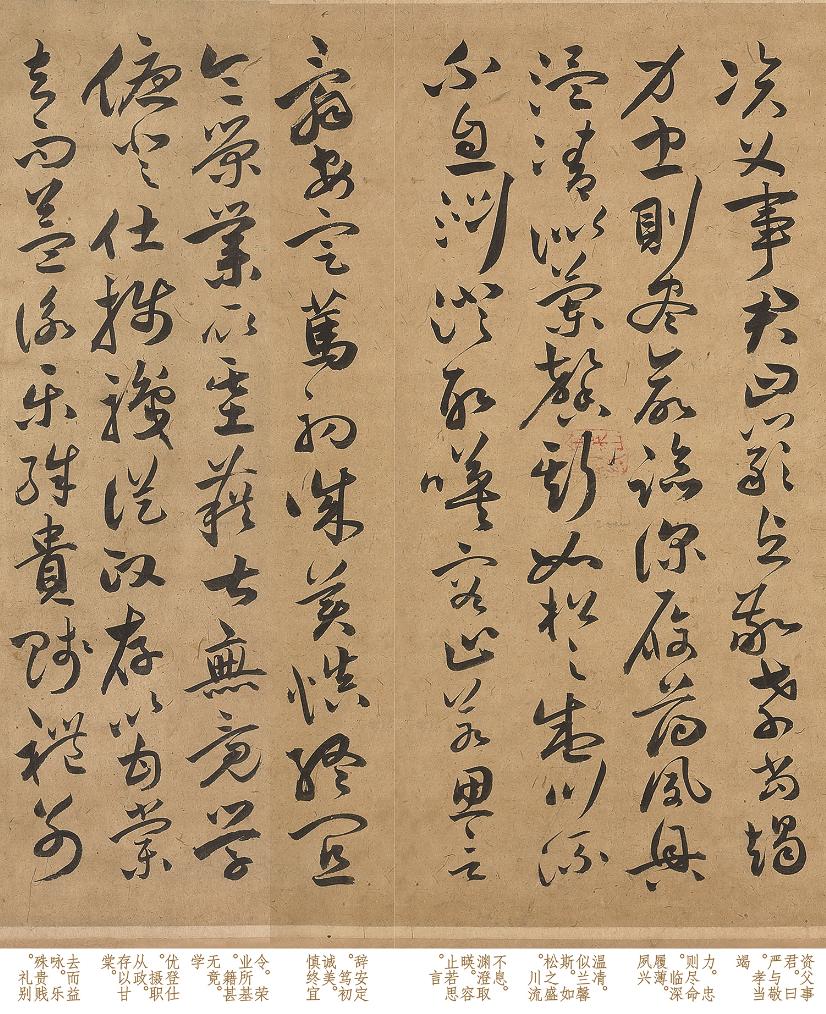 資父事君曰嚴與敬孝當竭
力忠則盡命臨深履薄夙興
温清似蘭馨斯如松之盛川流
不息淵澄取暎容止若思言
辭安定篤初誠美慎終宜
令榮業所基藉甚無竟學
優登仕攝職從政存以甘棠
去而益詠樂殊貴賤禮別
资父事
君。曰
严与敬
。孝当
竭
力。忠
则尽命
。临深
履薄。
夙兴
温清。
似兰馨
斯。如
松之盛
。川流
不息。
渊澄取
暎。容
止若思
。言
辞安定
。笃初
诚美。
慎终宜
令。荣
业所基
。籍甚
无竟。
学
优登仕
。摄职
从政。
存以甘
棠。
去而益
咏。乐
殊贵贱
。礼别